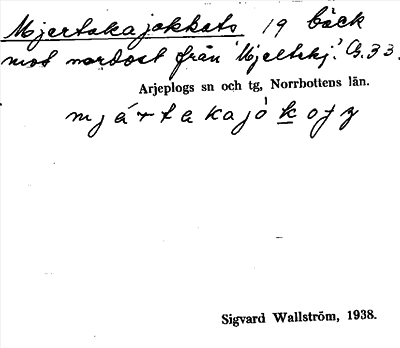 Mjertakajokkats 19 bäck
mot nordost från 'Mjeltskj'. Cg. 33.
Arjeplogs sn och tg, Norrbottens län.
mjártakajókoʒʒ
Sigvard Wallström, 1938.